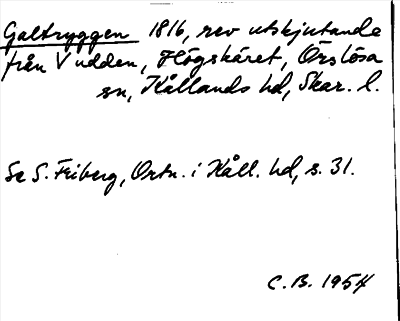 Galtryggen 1816, rev utskjutande
från V udden, Högskäret, Örslösa
sn, Kållands hd, Skar. l.
Se S. Friberg, Ortn. i Kåll. hd, s. 31.
C.B. 1954